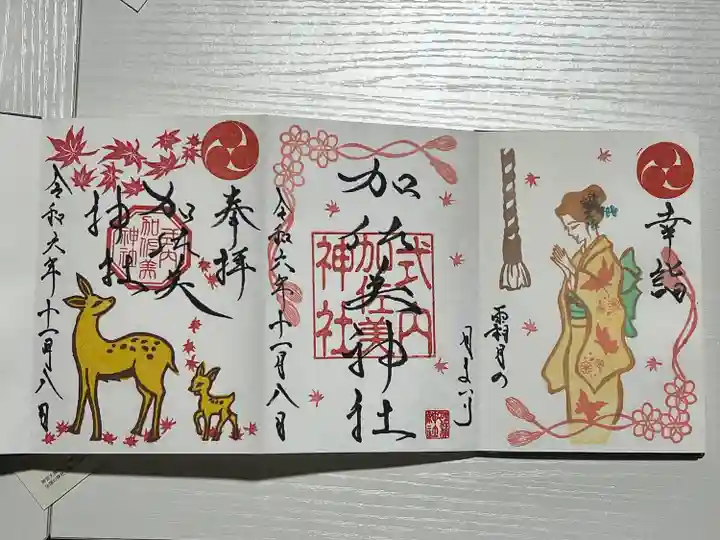 幸詣
霜月の
月まいり
加佐美神社
式内
加佐美
神社
令和六年十一月八日
奉拝
加佐美
神社
令和六年十一月八日